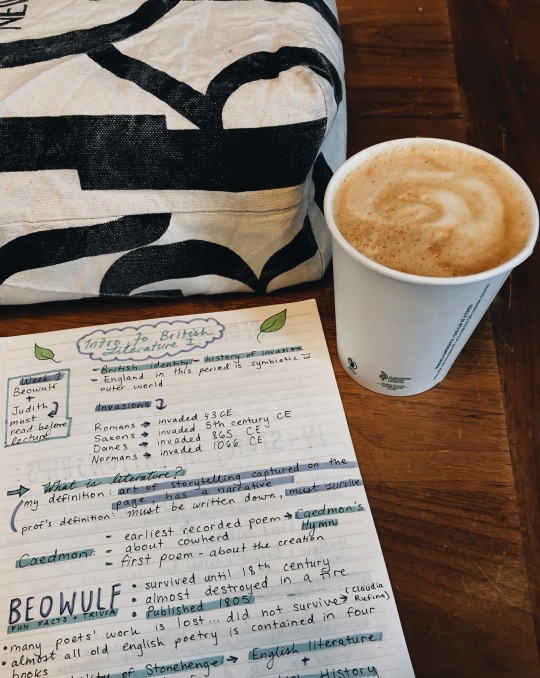 NEW
Intro to British
Literature I
Week 1
Beowulf
+
Judith
must
read before
lecture
- British identity - history of invasion
- England in this period is symbiotic w
outer world
Invasions
Romans → invaded 43 CE
Saxons → invaded 5th century CE
Danes → invaded 865 CE
Normans → invaded 1066 CE
→ What is literature?
my definition: art of storytelling captured on the
page, has a narrative
prof's definition: must be written down, must survive
Caedmon: - earliest recorded poem → Caedmon's
Hymn
- about cowherd
- first poem - about the creation
BEOWULF
FUN FACTS + TRIVIA
• survived until 18th century
• almost destroyed in a fire
• Published 1805
• many poets' work is lost... did not survive → (Claudia
Rufina)
• almost all old english poetry is contained in four
books
of Stonehenge → English literature
+
History